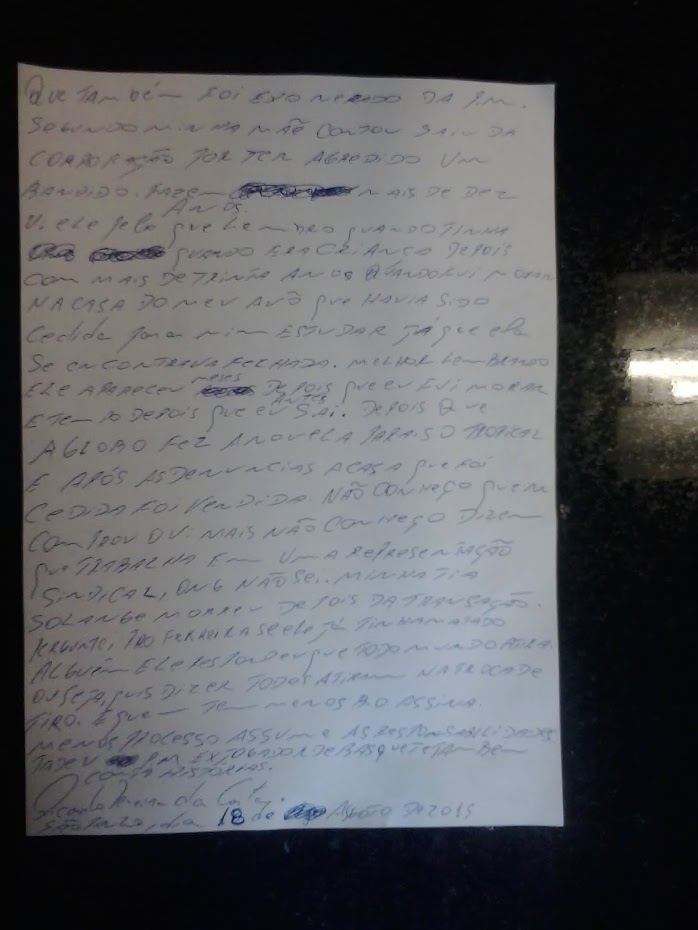 QUE TAMBÉM FOI EXONERADO DA P.M.
SEGUNDO MINHA MÃE CONTOU SAIU DA
CORPORAÇÃO POR TER AGREDIDO UM
BANDIDO. FAZEM MAIS DE DEZ
ANOS.
V. ELE pelo que LEMBRO QUANDO TINHA
QUANDO ERA CRIANÇA DEPOIS
COM MAIS DE TRINTA ANOS QUANDO FUI MORAR
NA CASA DO MEU AVÔ que HAVIA SIDO
Cedida para mim ESTUDAR JÁ que ela
SE ENCONTRAVA FECHADA. MELHOR LEMBRANDO
ELE APARECEU MESES DEPOIS que eu FUI MORAR
E TEMPO DEPOIS que eu ANTES SAI. DEPOIS QUE
A GLOBO FEZ A NOVELA PARAISO TROPICAL
E APÓS AS DENUNCIAS A CASA que FOI
CEDIDA FOI VENDIDA. NÃO CONHEÇO quem
COMPROU OUVI MAIS NÃO CONHEÇO DIZEM
que TRABALHA EM UMA REPRESENTAÇÃO
SINDICAL, ONG NÃO SEI. MINHA TIA
SOLANGE MORREU DEPOIS DA TRANSAÇÃO.
PERGUNTEI PRO FERREIRA SE ELE JÁ TINHA MATADO
ALGUÉM ELE RESPONDEU que TODO MUNDO ATIRA.
OU SEJA, quis DIZER TODOS ATIRAM NA TROCA DE
TIRO. E quem TEM MENOS B.O ASSINA.
MENOS PROCESSO ASSUME AS RESPONSABILIDADES
TADEU P.M. EX JOGADOR DE BASQUETE TAMBEM
CONTA HISTÓRIAS.
da Costa.
SÃO PAULO, dia 18 de AGOSTO DE 2015